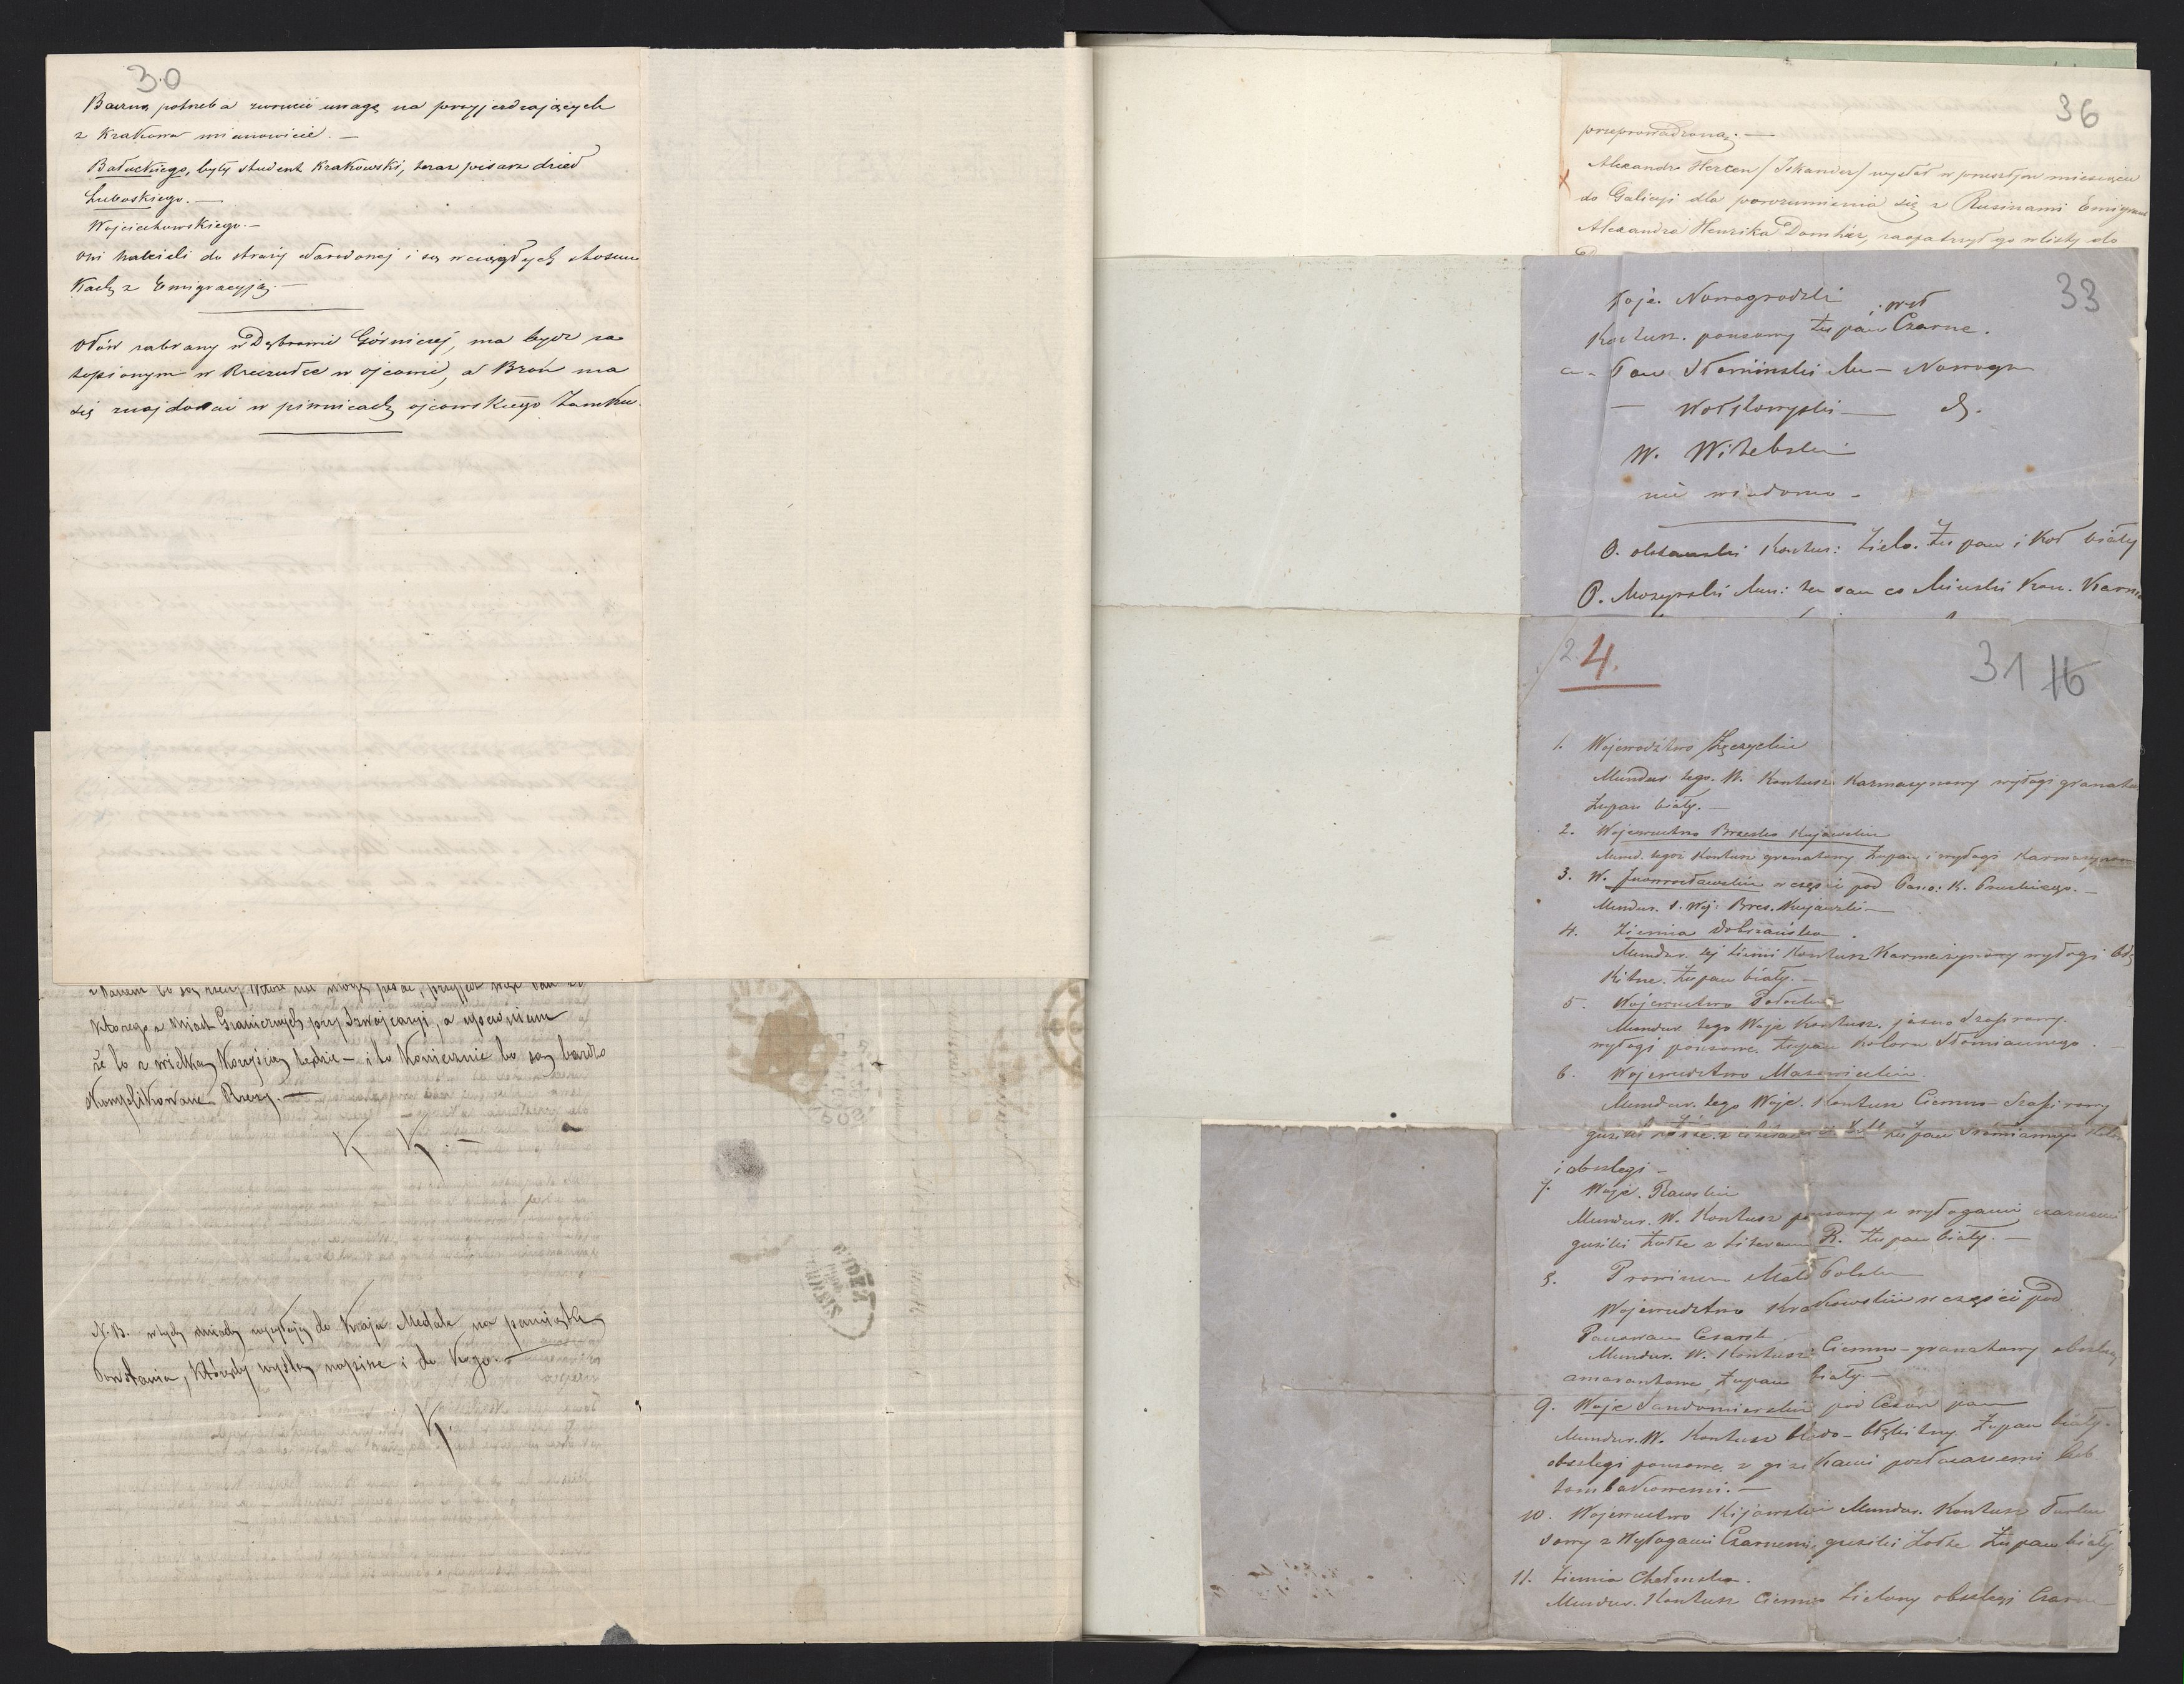 30
Baczną potrzeba zwrócić uwagę na przyjerdzających
z Krakowa mianowicie. —
Bałuckiego, były student Krakowski, teraz pisarz dzieł
Luboskiego. —
Wojciechowskiego. —
oni należeli do straży Narodowej i są w ciągłych stosun
kach z Emigracyją. —
Ołów zabrany w Dąbrowie Górniczej, ma bydź za
topionym w Rzeczułce w ojcowie, a Broń ma
się znajdować w piwnicach ojcowskiego Zamku.
którego z miast Granicznych przy Szwajcaryi, a upewniam
że to z wielką Korzyścią będzie — i to Koniecznie bo są bardzo
skomplikowane Rzeczy. —
K K. —
N.B. w tych dniach wysyłają do Kraju Medale na pamiątkę
Powstania, któredy wyślą napiszę i do Kogo. —
K.
36
przeprowadzoną. —
Alexander Hercen /Iskander/ wysłał w przeszłym miesiącu
do Galicyi dla porozumienia się z Rusinami Emigran
Alexandra Henrika Domhër, zaopatrzył go w listy do
33
Woje. Nowogrodzki
Kontusz. ponsowy Żupan i wył Czarne.
Pow Słonimski Mu — Nowogr
— Wołkowyski — d.
W. Witebski
nie wiadomo —
P. Mozyrski Mun: ten sam co Miński Kon. Karm
2. 4.
31 16
1. Wojewodztwo Łęczyckie
Mundur tego. W. Kontusz Karmazynowy wyłogi granato
Żupan biały. —
2. Wojewuctwo Brzesko Kujawskie
Mund. tegoż Kontusz granatowy Żupan i wyłogi Karmazynowe
3. W. Jnowrocławskie w części pod Pano: K. Pruskiego. —
Mundur. s. Woj: Brzes. Kujawski —
4. Ziemia Dobrzańska .
Mundur. tej Ziemi Kontusz Karmazynowy wyłogi błę
kitne. Żupan biały. —
5. Wojewuctwo Połockie
Mundur. tego Woje Kontusz. jasno Szafirowy.
wyłogi ponsowe. Żupan Koloru Słomiannego. —
6. Wojewudztwo Mazowieckie.
Mundur. tego Woje. Kontusz Ciemno — Szafirowy
guziki żółte z literami Żupan słomianego Kolo
i obszlegi —
7. Woje. Rawskie
Mundur. W. Kontusz ponsowy z wyłogami czarnemi
guziki żółte z literami R. Żupan biały. —
8. Prowincia Mało Polska
Wojewudztwo Krakowskie w części pod
Panowan Cesarsk
Mundur. W. Kontusz Ciemno — granatowy obszleg
amarantowe, Żupan biały. —
9. Woje Sandomierskie pod Cesar pan
Mundur. W. Kontusz blado — błękitny Żupan biały.
obszlegi ponsowe. z guzikami pozłacanemi lub
tombakowemi. —
10. Wojewuctwo Kijowskie Mundur. Kontusz Turku
sowy z Wyłogami Czarnemi, guziki żółte Żupan biały
11. Ziemia Chełmska.
Mundur. Kontusz Ciemno Zielony obszlegi Czarne